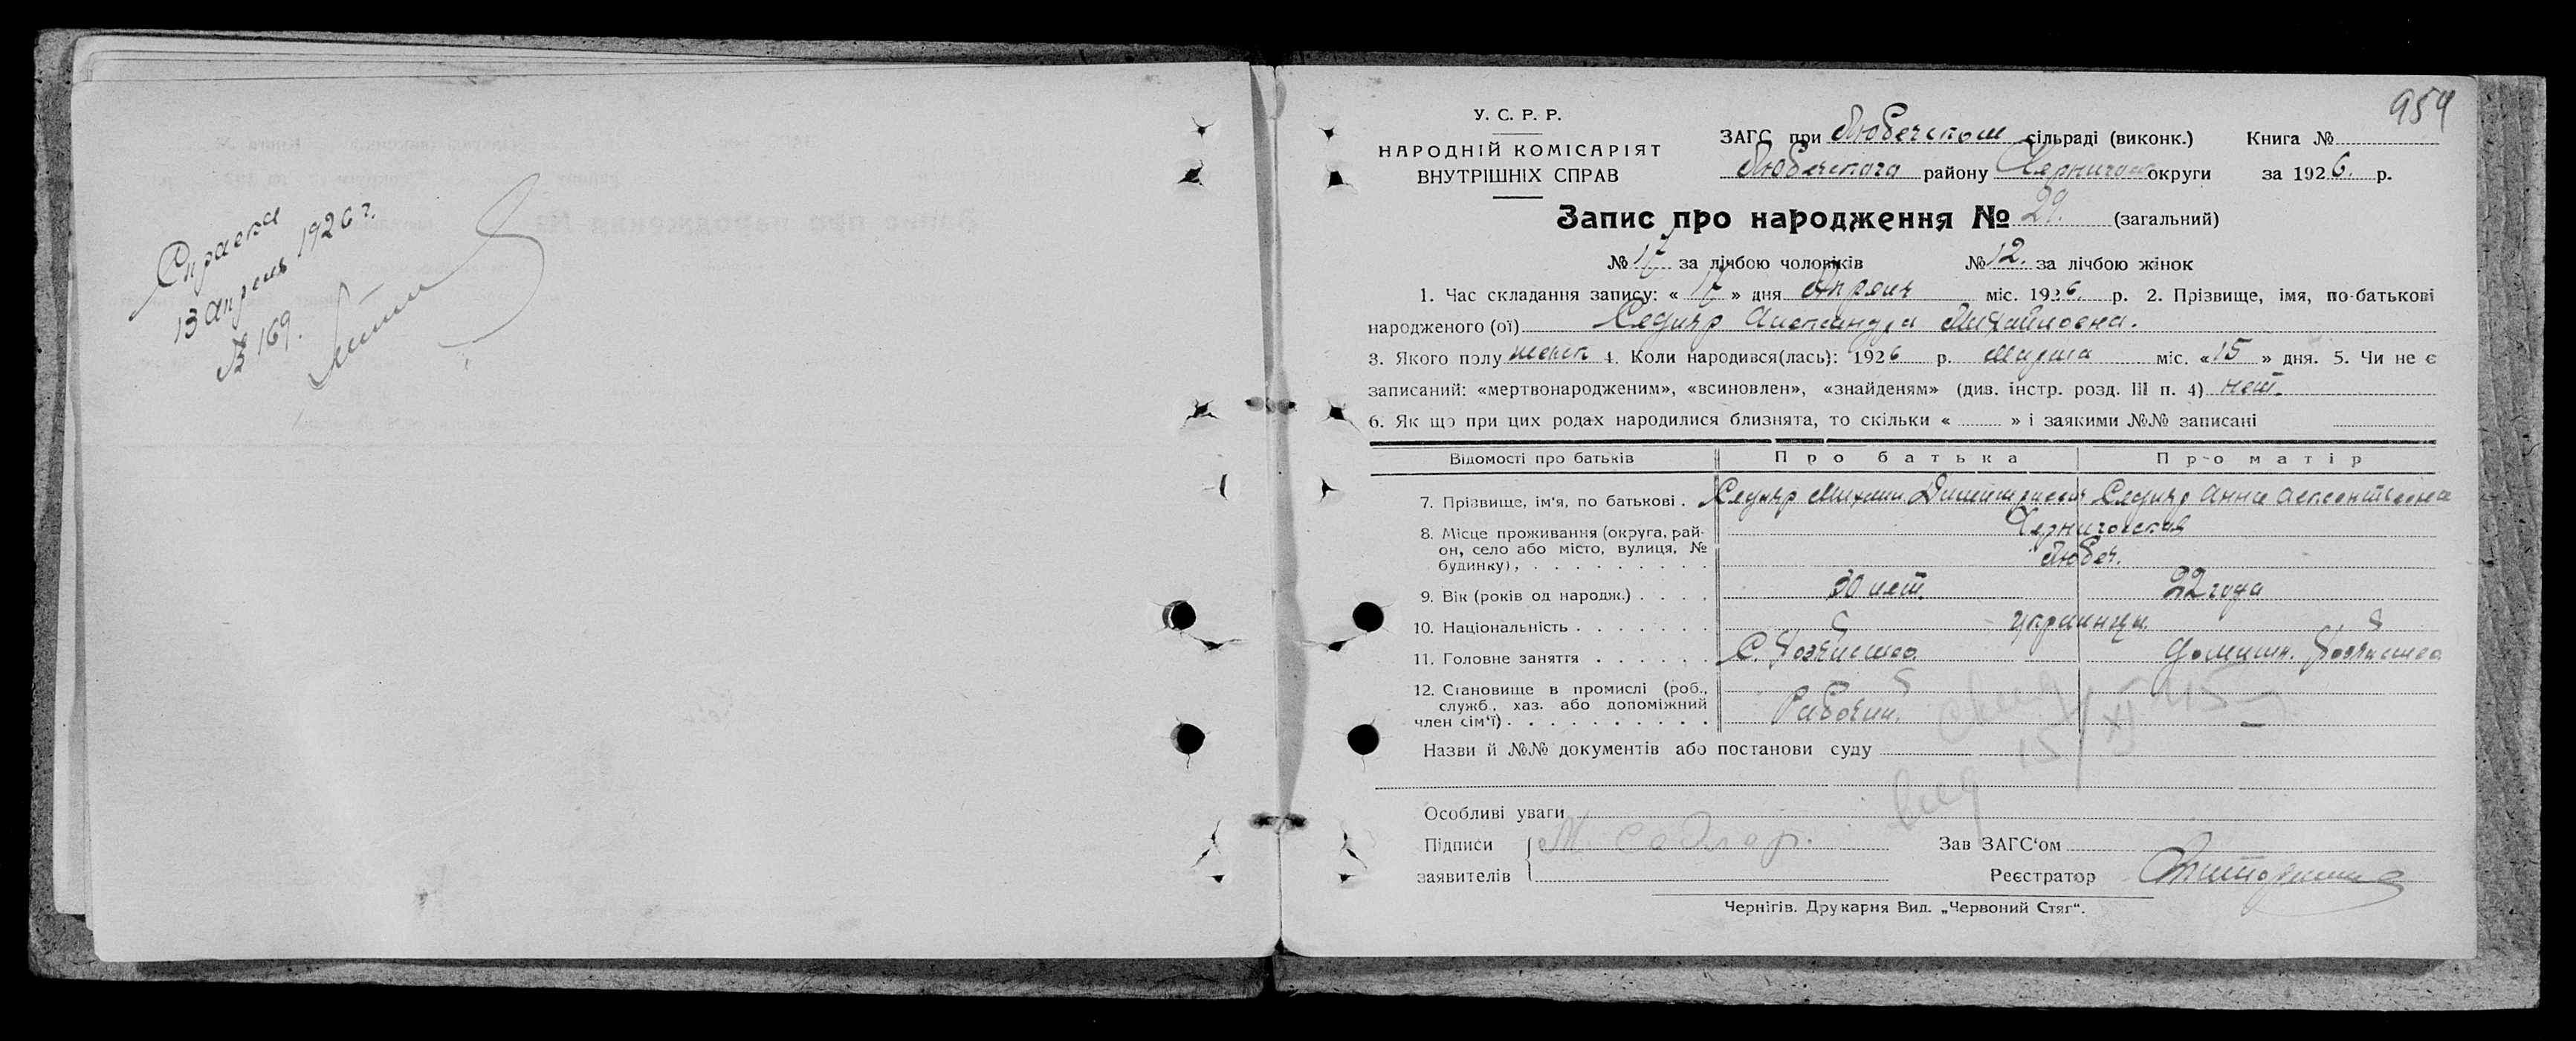 Справка
13 апреля 1926 г.
№ 169.
954
У. С. Р. Р.
НАРОДНІЙ КОМІСАРІЯТ
ВНУТРІШНІХ СПРАВ
ЗАГС при Любечском сільраді (виконк.) Книга №
Любечского району Чернигов округи за 1926. р.
Запис про народження № 29. (загальний)
№ 17 за лічбою чоловіків № 12. за лічбою жінок
1. Час складання запису: « 17 » дня Апреля міс. 1926. р. 2. Прізвище, імя, по-батькові
народженого (ої) Седляр Александра Михайловна.
3. Якого полу женск 4. Коли народився(лась): 1926 р. Марта міс. «15» дня. 5. Чи не є
записаний: «мертвонародженим», «всиновлен», «знайденям» (див. інстр. розд. III п. 4) нет.
6. Як що при цих родах народилися близнята, то скільки « » і заякими №№ записані
Відомості про батьків Про батька Про матір
7. Прізвище, ім'я, по батькові . Седляр Михаил Димитриевич Седляр Анна
8. Місце проживання (округа, рай- Черниговская
он, село або місто, вулиця, №
будинку), Любеч.
9. Вік (років од народж.) 30 лет. 22 года
10. Національність украинцы.
11. Головне заняття С. Хозяйство Домашн. Хозяйство
12. Становище в промислі (роб.,
служб., хаз. або допоміжний
член сім'ї) Рабочий. —
Назви й №№ документів або постанови суду
15/XI 45
Особливі уваги
Підписи М Седляр. Зав ЗАГС'ом
заявителів Реєстратор
Чернігів. Друкарня Вид. „Червоний Стяг“.